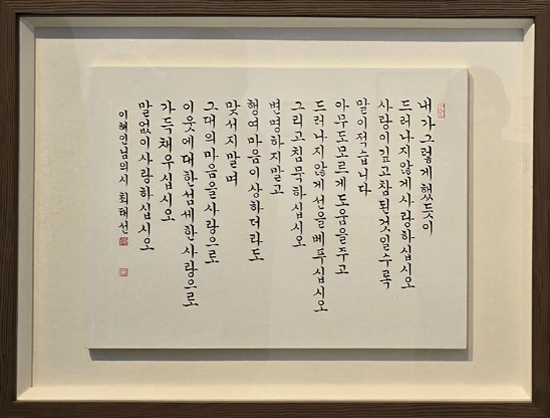 내가그렇게했듯이
드러나지않게사랑하십시오
사랑이깊고참된것일수록
말이적습니다
아무도모르게도움을주고
드러나지않게선을베푸십시오
그리고침묵하십시오
변명하지말고
행여마음이상하더라도
맞서지말며
그대의마음을사랑으로
이웃에대한섬세한사랑으로
가득채우십시오
말없이사랑하십시오
이해인님의시 최태선